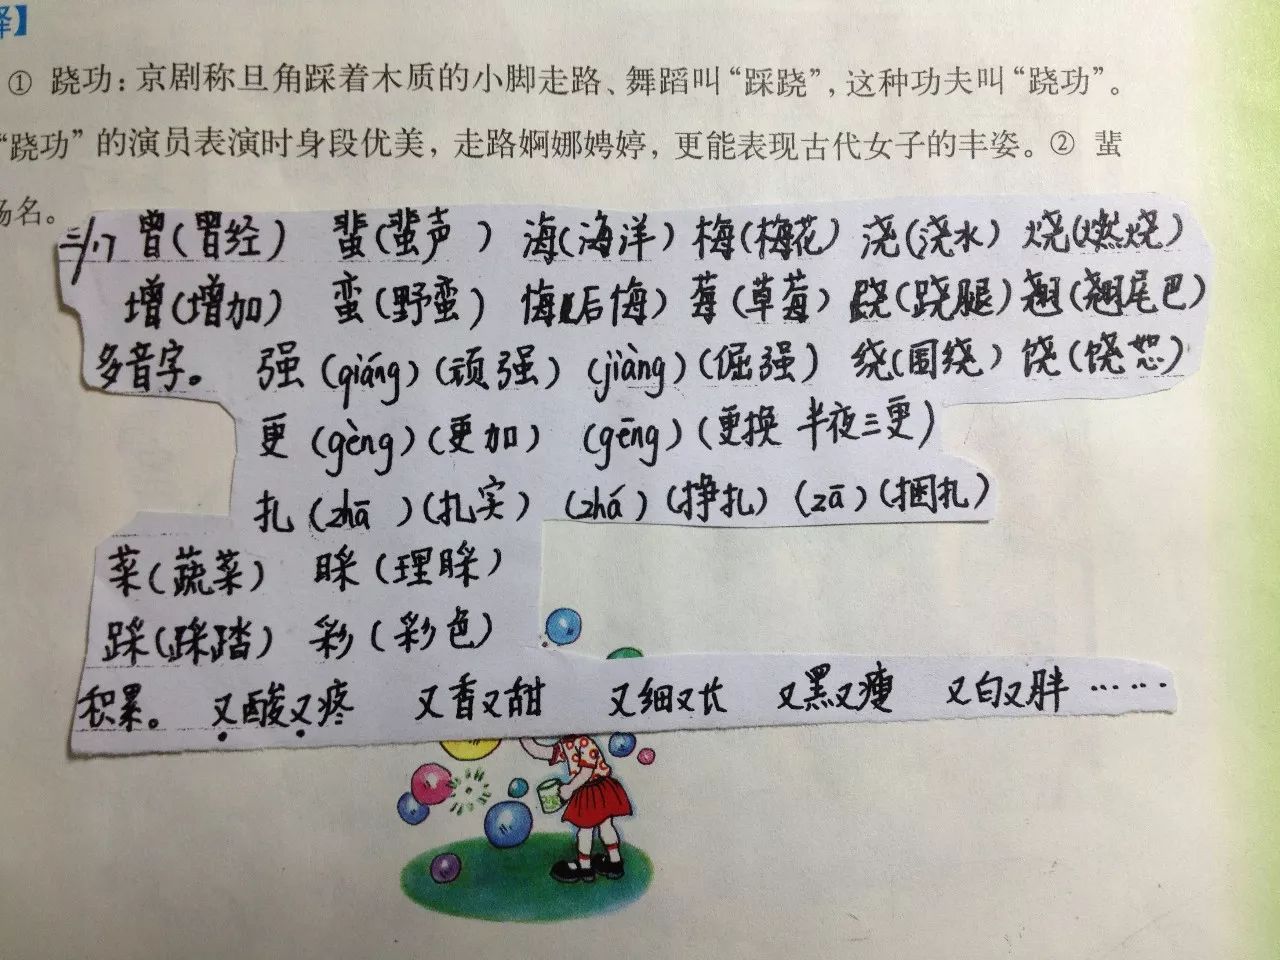 释】
① 跷功：京剧称旦角踩着木质的小脚走路、舞蹈叫“踩跷”，这种功夫叫“跷功”。
“跷功”的演员表演时身段优美，走路婀娜娉婷，更能表现古代女子的丰姿。② 蜚
扬名。
三/17 曾(曾经) 蜚(蜚声) 海(海洋) 梅(梅花) 浇(浇水) 烧(燃烧)
增(增加) 蛮(野蛮) 悔(后悔) 莓(草莓) 跷(跷腿) 翘(翘尾巴)
多音字。 强(qiáng)(顽强) (jiàng)(倔强) 绕(围绕) 饶(饶恕)
更(gèng)(更加) (gēng)(更换 半夜三更)
扎(zhā)(扎实) (zhá)(挣扎) (zā)(捆扎)
菜(蔬菜) 睬(理睬)
踩(踩踏) 彩(彩色)
积累。 又酸又疼 又香又甜 又细又长 又黑又瘦 又白又胖 ……